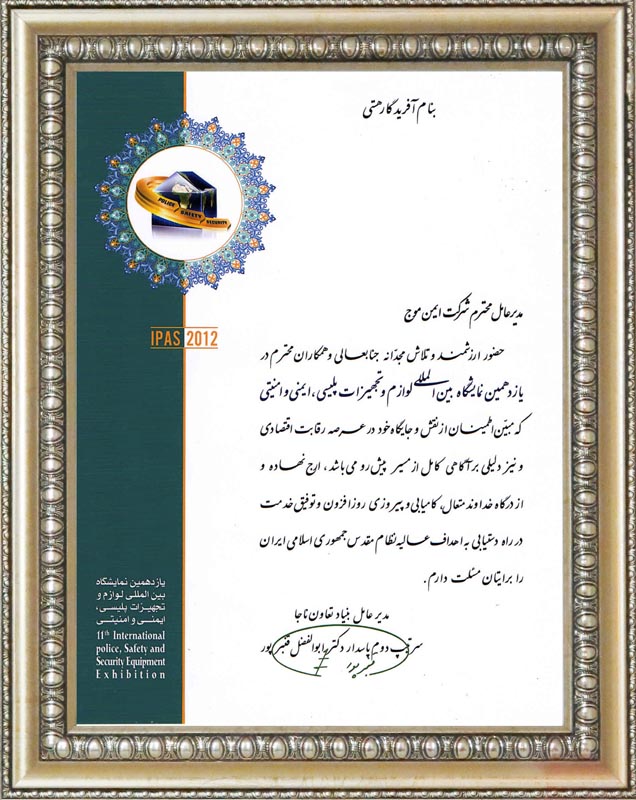 بنام آفریدگار هستی
POLICE SAFETY SECURITY
IPAS 2012
مدیرعامل محترم شرکت ایمن موج
حضور ارزشمند و تلاش مجدّانه جنابعالی و همکاران محترم در
یازدهمین نمایشگاه بین المللی لوازم و تجهیزات پلیسی، ایمنی و امنیتی
که مبیّن اطمینان از نقش و جایگاه خود در عرصه رقابت اقتصادی
و نیز دلیلی بر آگاهی کامل از مسیر پیش رو می باشد، ارج نهاده و
از درگاه خداوند متعال، کامیابی و پیروزی روز افزون و توفیق خدمت
در راه دستیابی به اهداف عالیه نظام مقدس جمهوری اسلامی ایران
را برایتان مسئلت دارم.
مدیر عامل بنیاد تعاون ناجا
سرتیپ دوم پاسدار دکتر ابوالفضل قنبرپور
یازدهمین نمایشگاه
بین المللی لوازم و
تجهیزات پلیسی،
ایمنی و امنیتی
11th International
police, Safety and
Security Equipment
Exhibition